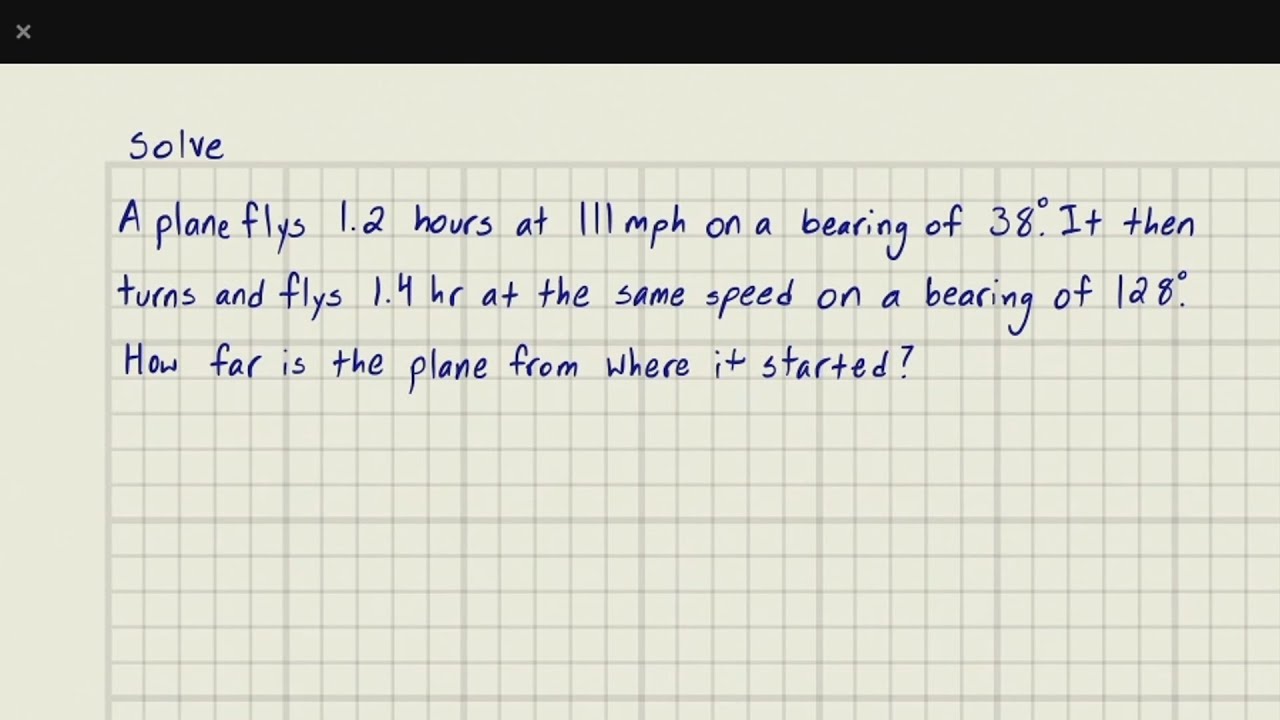 Solve
A plane flys 1.2 hours at 111 mph on a bearing of 38°. It then
turns and flys 1.4 hr at the same speed on a bearing of 128°.
How far is the plane from where it started?